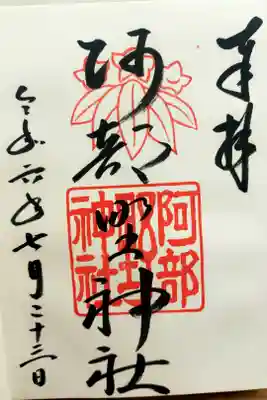 奉拝
阿部野神社
阿部
野
神社
令和六年七月二十三日